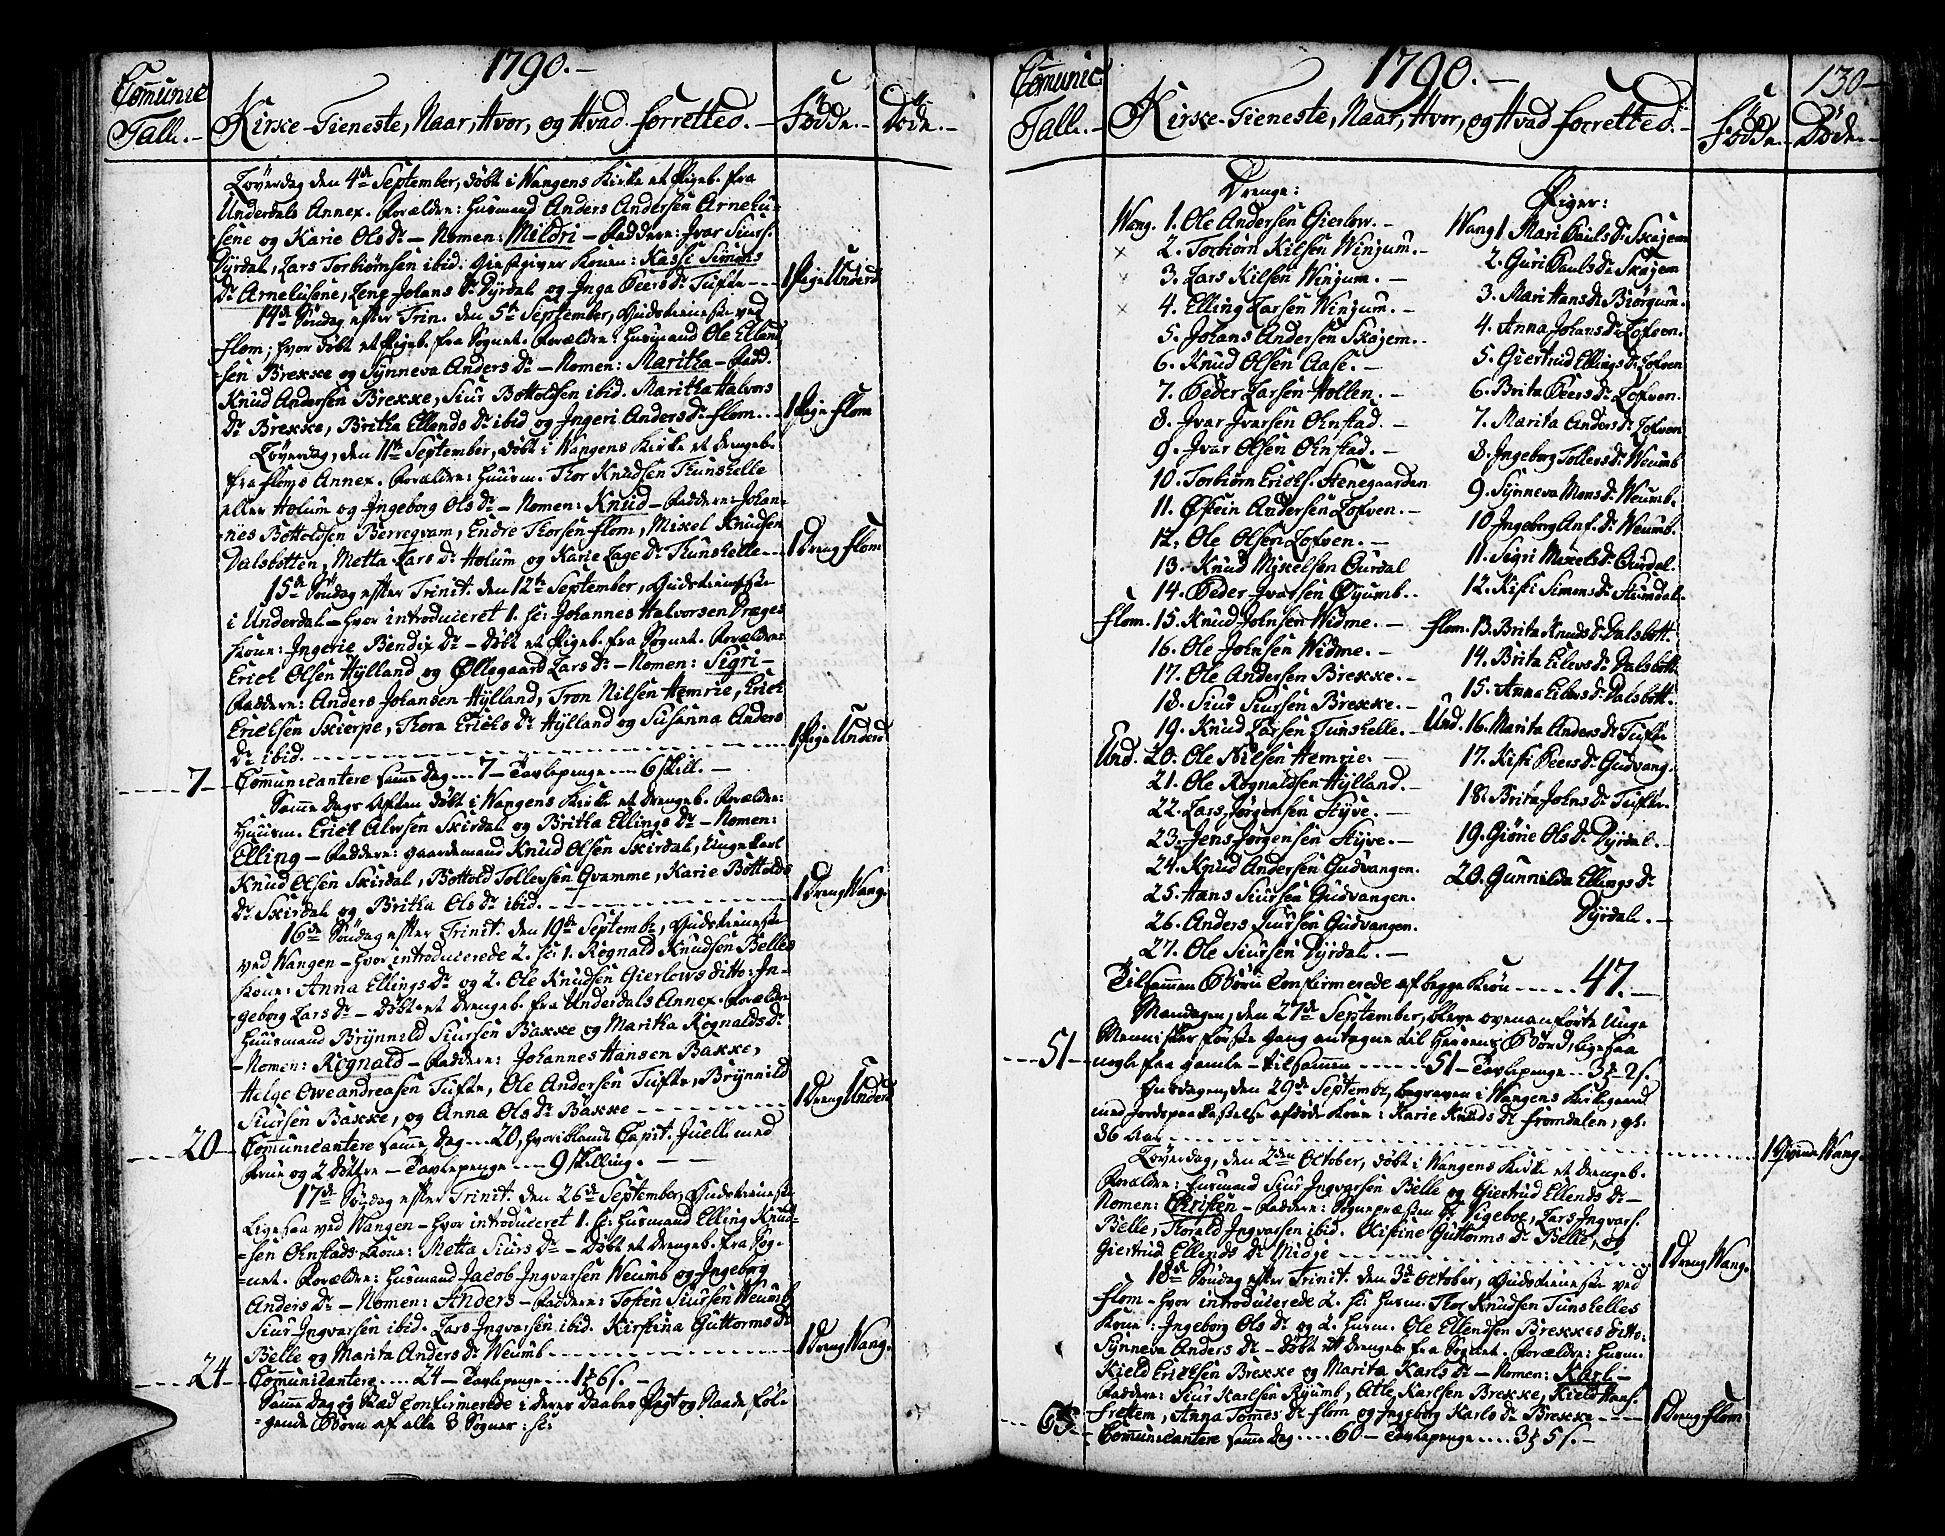 1790.-
Comunic
Tall.-
Kirke-Tieneste, Naar, Hvor, og Hvad forretted.-
Födde.-
Döde.-
Löverdag den 4de September, döbt i Wangens Kirke et Pigeb. fra
Underdals Annex. Forældre: Husmand Anders Andersen Arnehu-
sene og Karie Ols Dr - Nomen: Mildri - Faddere: Ivar Siurs.
Dyrdal, Lars Torbiörnsen ibid. Giestgiver Konen: Kasse Simons
Dr Arnehusene, Lene Johans Dr Dyrdal og Inga Peers Dr Tufte ---
1 Pige Underd
14de Söndag efter Trin. den 5te September, Gudstieneste ved
Flom; hvor döbt et Pigeb. fra Sognet. Forældre: Husmand Ole Ellend
sen Brekke og Synneva Anders Dr - Nomen: Maritha - Fadd.
Knud Andersen Brekke, Siur Botholdsen ibid. Maritha Halvors
Dr Brekke, Britha Ellends Dr ibid og Ingeri Anders Dr Flom...
1 Pige Flom
Löverdag, den 11te September, döbt i Wangens Kirke et Drengeb.
fra Floms Annex. Forældre: Huusm. Thor Knudsen Tunshelle
eller Holum og Ingeborg Ols Dr - Nomen: Knud - Faddere: Johan-
nes Bottoldsen Berreqvam, Endre Thorsen Flom, Mikel Knudsen
Dalsbotten, Metta Lars Dr Holum og Karie Lage Dr Tunshelle --
1 Dreng Flom
15de Söndag efter Trinit. den 12te September, Gudstieneste
i Underdal - hvor introduceret 1. sc: Johannes Halvorsen Præges
Kone: Ingerie Bendix Dr - Döbt et Pigeb. fra Sognet. Forældre:
Erich Olsen Hylland og Öllegaard Lars Dr - Nomen: Sigri -
Faddere: Anders Johansen Hylland, Tron Nilsen Hemrie, Erich
Erichsen Skierpe, Thora Erichs Dr Hylland og Susanna Anders
Dr ibid.
1 Pige Underd
7
Communicantere samme Dag ... 7 - Tavlepenge --- 6 skill. -
Samme Dags Aften döbt i Wangens Kirke et Drengeb. Forældre:
Huusm. Erich Alvsen Skirdal og Britha Ellings Dr - Nomen:
Elling - Faddere: Gaardemand Knud Olsen Skirdal, Unge Karl
Knud Olsen Skirdal, Bottold Tollevsen Qvamme, Karie Bottolds
Dr Skirdal og Britha Ols Dr ibid.
1 Dreng Wang.
16de Söndag efter Trinit. den 19de Septembr, Gudstieneste
ved Wangen - hvor introducerede 2. sc: 1. Rognald Knudsen Belles
Kone: Anna Ellings Dr og 2. Ole Knudsen Gierlows ditto: In-
geborg Lars Dr - Döbt et Drengeb. fra Underdals Annex. Forældre
Huusmand Brynnild Siursen Bakke og Maritha Rognalds Dr
- Nomen: Rognald - Faddere: Johannes Hansen Bakke,
Helge Oweandreasen Tufte, Ole Andersen Tufte, Brynnild
Siursen Bakke, og Anna Ols Dr Bakke
1 Dreng Underd
20
Comunicantere samme Dag ... 20, hvoriblandt Capit. Juell med
Frue og 2 Döttre - Tavlepenge --- 9 Skilling. -
17de Söndag efter Trinit. den 26de September, Gudstieneste
ligesaa ved Wangen - hvor introduceret 1. sc: Husmand Elling Knud-
sen Ohnstads Kone: Metta Siurs Dr - Döbt et Drengeb. fra Sog-
net. Forældre: Husmand Jacob Ingvarsen Weumb og Ingeborg
Anders Dr - Nomen: Anders - Faddere: Tosten Siursen Weumb
Siur Ingvarsen ibid. Lars Ingvarsen ibid. Kirstina Guttorms Dr
Belle og Marita Anders Dr Weumb
1 Dreng Wang.
24
Communicantere .... 24 - Tavlepenge --- 1 6s. -
Samme Dag og Stæd Confirmerede i deres Daabes Pagt og Naade föl-
gende Börn af alle 3 Sogner: sc:
1790.-
130-
Comunic
Tall.-
Kirke-Tieneste, Naar, Hvor, og Hvad forretted.-
Födde.-
Döde.-
Drenge:
Wang. 1. Ole Andersen Gierlow. -
× 2. Torbiörn Nilsen Winjum. -
3. Lars Nilsen Winjum. -
× 4. Elling Larsen Winjum. -
5. Johans Andersen Skajem. -
6. Knud Olsen Aase. -
7. Peder Larsen Hollen. -
8. Ivar Ivarsen Ohnstad. -
9. Ivar Olsen Ohnstad. -
10. Torbiörn Erichs. Stenegaarden
11. Östein Andersen Lofven. -
12. Ole Olsen Lofven. -
13. Knud Mikelsen Ourdal
14. Peder Ivarsen Öyumb. -
Flom. 15. Knud Johnsen Widme. -
16. Ole Johnsen Widme. -
17. Ole Andersen Brekke. -
18. Siur Siursen Brekke. -
19. Knud Larsen Tunshelle. -
Und. 20. Ole Nilsen Hemrie. -
21. Ole Rognaldsen Hylland. -
22. Lars Jörgensen Styve. -
23. Jens Jörgensen Styve. -
24. Knud Andersen Gudvangen.
25. Hans Siursen Gudvangen.
26. Anders Siursen Gudvangen.
27. Ole Siursen Dyrdal. -
Piger:
Wang 1. Mari Pauls Dr Skajem
2. Guri Pauls Dr Skajem
3. Mari Hans Dr Biörgum.
4. Anna Johans Dr Lofven.
5. Giertrud Ellings Dr Lofven
6. Brita Peers Dr Lofven.
7. Marita Anders Dr Lofven
8. Ingeborg Tollevs Dr Weumb
9. Synneva Mons Dr Weumb.
10. Ingeborg Anf. Dr Weumb.
11. Sigri Mikels Dr Ourdal.
12. Kisti Simons Dr Stumdal.
Flom. 13. Brita Knuds Dr Dalsbott.
14. Brita Eilevs Dr Dalsbott.
15. Anna Eilevs Dr Dalsbott.
Und. 16. Marita Anders Dr Tufte
17. Kisti Peers Dr Gudvang.
18. Brita Johns Dr Tufte.
19. Giöne Ols Dr Dyrdal.
20. Gunnilda Ellings Dr
Dyrdal. -
Tilsammen Börn Confirmerede af begge Kiön ---- 47. -
Mandagen, den 27de September, bleve ovenanförte Unge
Mennisker förste Gang antagne til Herrens Bord, ligesaa
51
nogle faa gamle - tilsammen ---- 51 - Tavlepenge .. 3 2s.
Onsdagen, den 29de Septembr, begraven i Wangens Kirkegaard
med Jordspaakastelse afdöde Kone: Karie Knuds Dr Fromdalen, gl:
36 Aar
1 Qvinde Wang.
Löverdag, den 2den October, döbt i Wangens Kirke et Drengeb.
Forældre: Husmand Siur Ingvarsen Belle og Giertrud Ellends Dr -
Nomen: Christen - Faddere: Sognepræsten Dr Vigeboe, Lars Ingvars.
Belle, Thorald Ingvarsen ibid. Kistine Guttorms Dr Belle, og
Giertrud Ellends Dr Midje
1 Dreng Wang.
18de Söndag efter Trinit. den 3de October, Gudstieneste ved
Flom - hvor introducerede 2. sc: Husm. Thor Knudsen Tunshelles
Kone: Ingeborg Ols Dr og 2. Husm. Ole Ellendsen Brekkes ditto:
Synneva Anders Dr - Döbt et Drengeb. fra Sognet. Forældre: Husm.
Kield Erichsen Brekke og Marita Karls Dr - Nomen: Karl -
Faddere: Siur Karlsen Ryumb, Atle Karlsen Brekke, Kield
Frettem, Anna Tommes Dr Flom og Ingeborg Karls Dr Brekke
1 Dreng Flom
Communicantere samme Dag .... 60 - Tavlepenge .... 3 5s. -